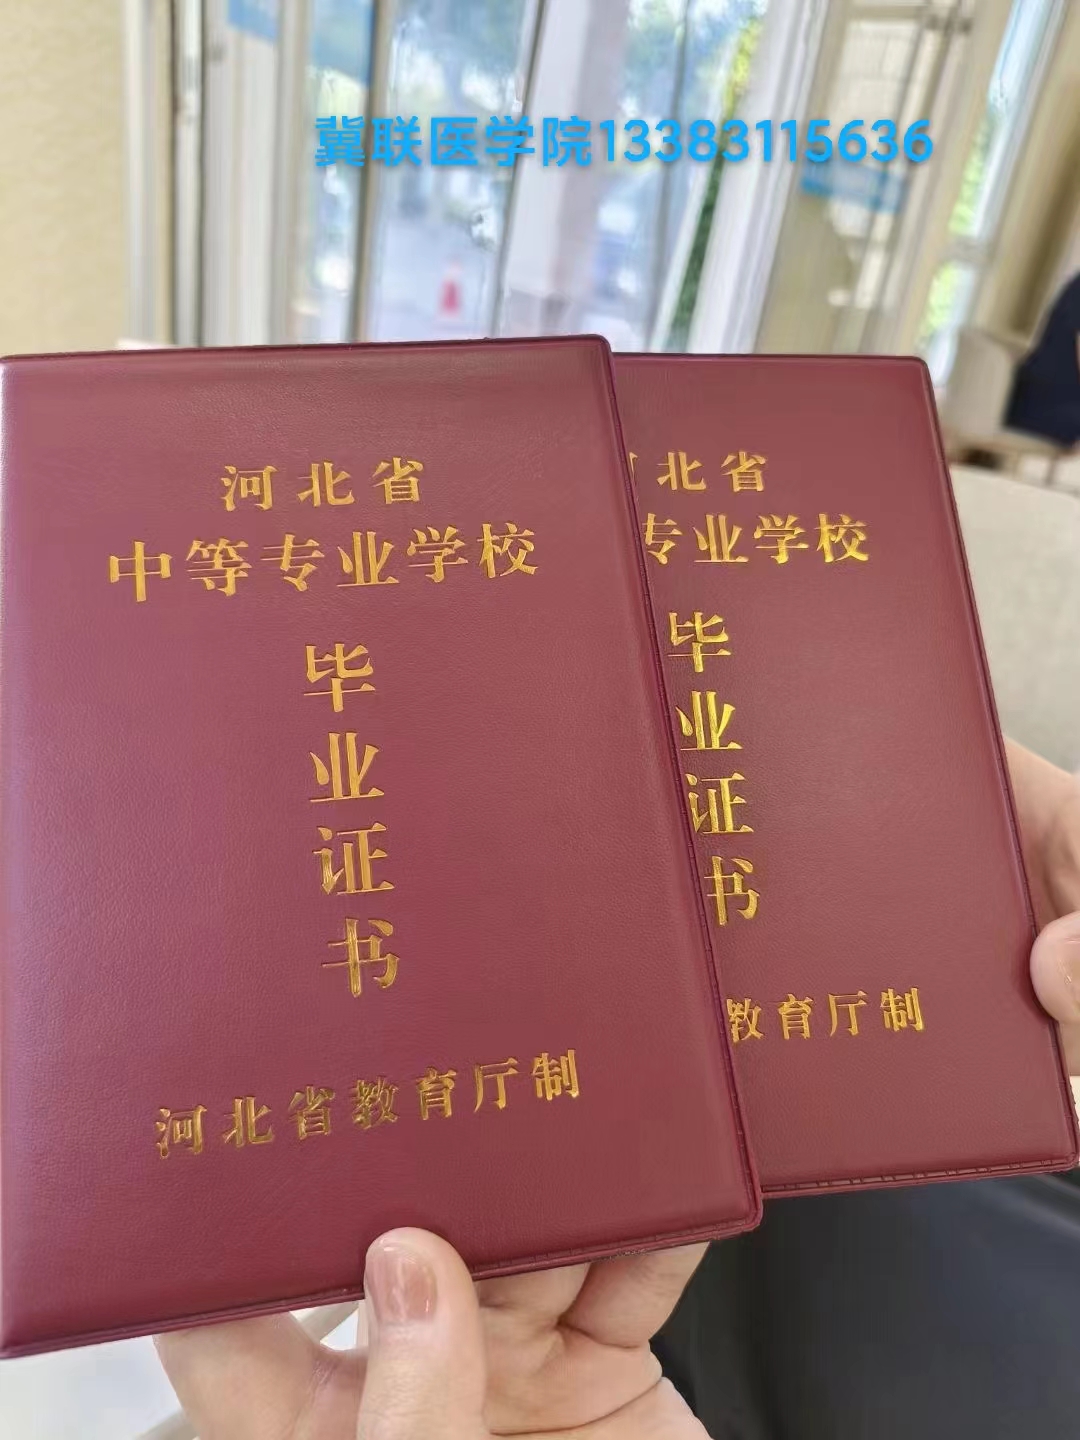 冀联医学院13383115636
河北省
中等专业学校
毕
业
证
书
河北省教育厅制
北省
专业学校
毕
业
证
书
教育厅制